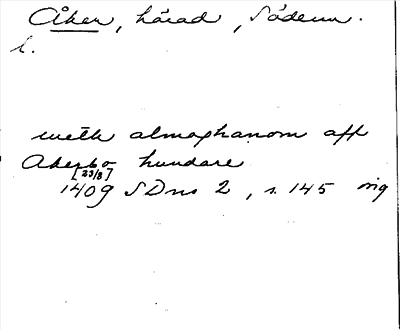 Åker, härad, Söderm.
l.
meth almoghanom aff
Akerbo hundare
[23/8]
1409 SDns 2, s. 145 orig